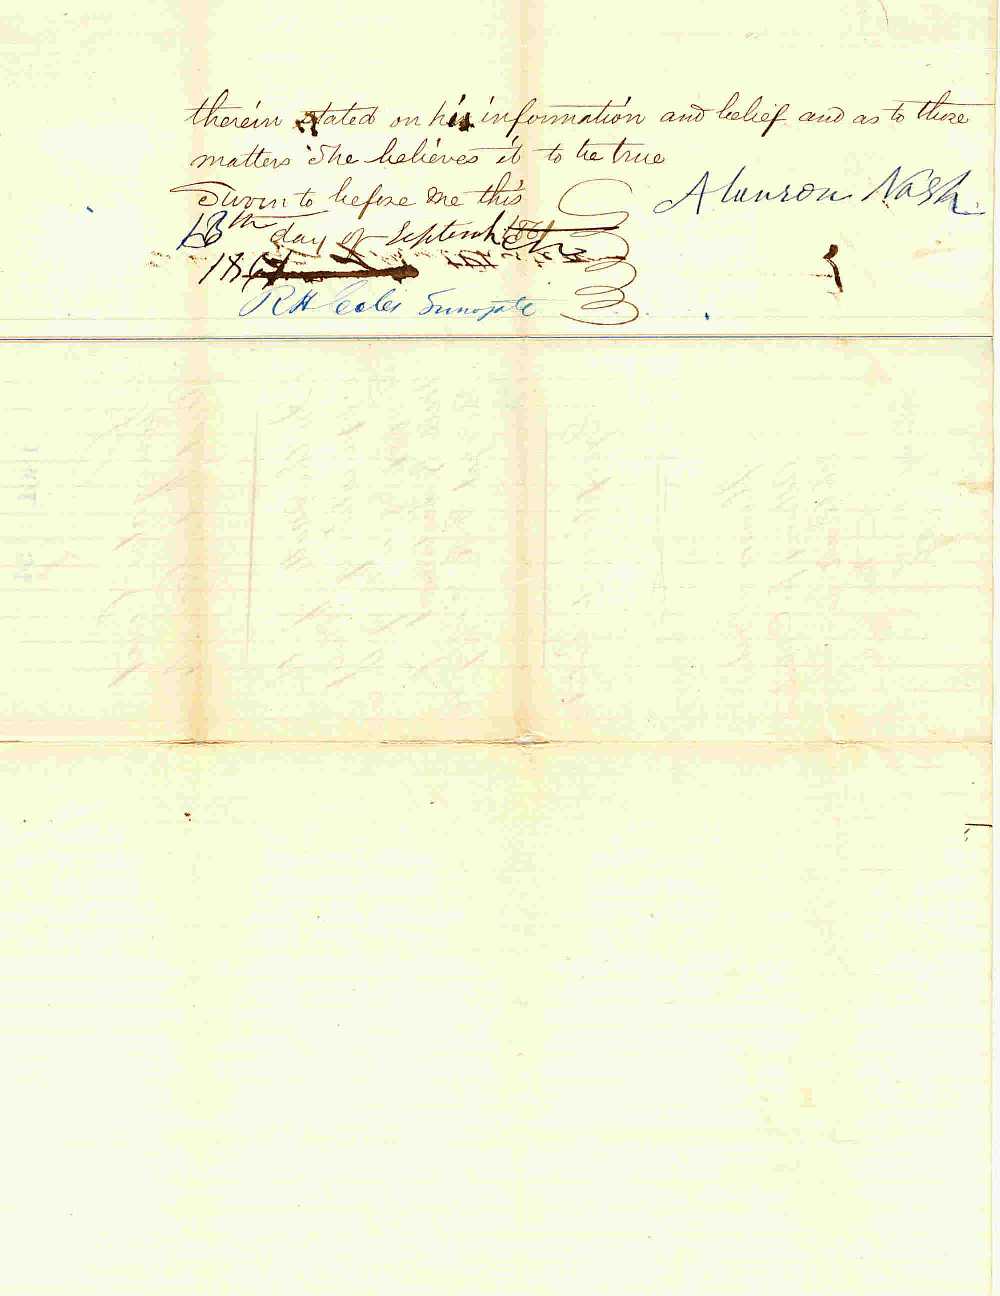 therein stated on his information and belief and as to those
matters She believes it to be true
Sworn to before me this
Alanson Nash
13th day of September
186
R H Coles Surrogate